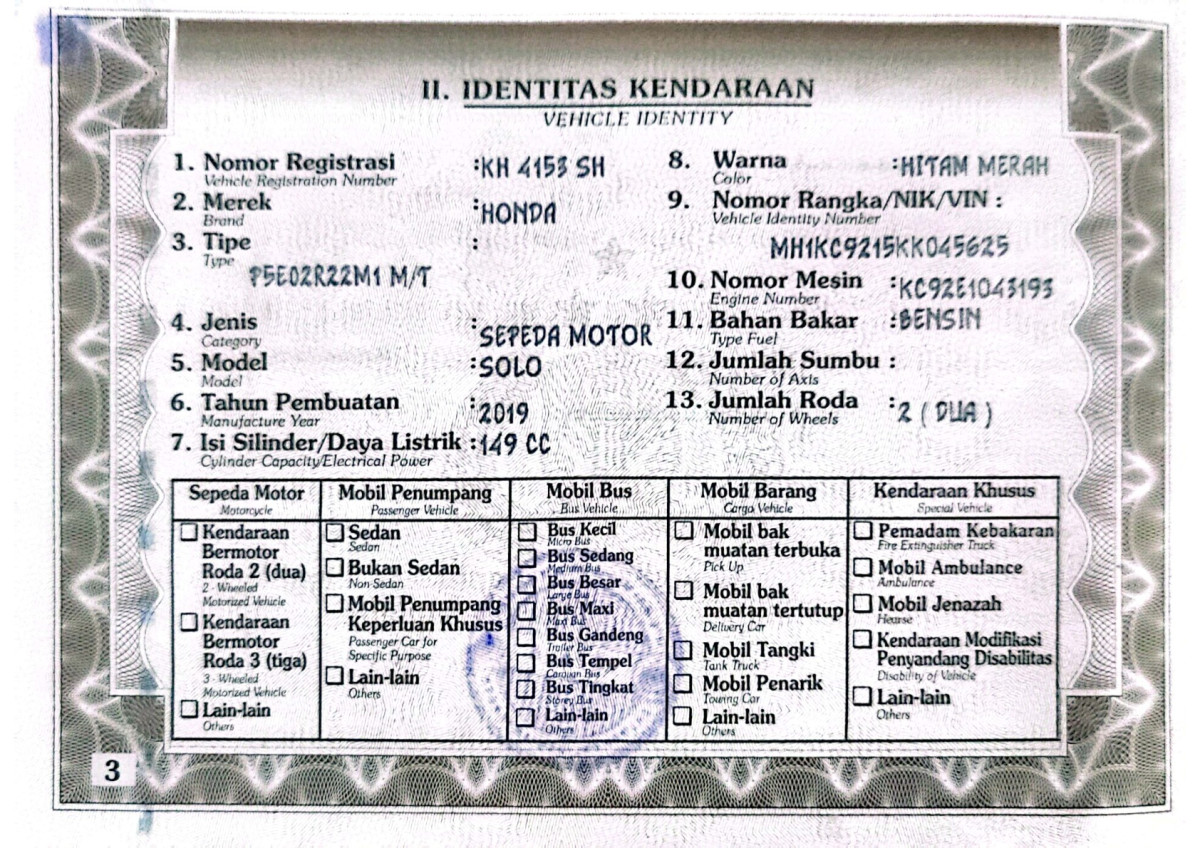 II. IDENTITAS KENDARAAN
VEHICLE IDENTITY
1. Nomor Registrasi :KH 4153 SH
Vehicle Registration Number
2. Merek :HONDA
Brand
3. Tipe :
Type
P5E02R22M1 M/T
4. Jenis :SEPEDA MOTOR
Category
5. Model :SOLO
Model
6. Tahun Pembuatan :2019
Manufacture Year
7. Isi Silinder/Daya Listrik :149 CC
Cylinder Capacity/Electrical Power
8. Warna :HITAM MERAH
Color
9. Nomor Rangka/NIK/VIN :
Vehicle Identity Number
MH1KC9215KK045625
10. Nomor Mesin :KC92E1043193
Engine Number
11. Bahan Bakar :BENSIN
Type Fuel
12. Jumlah Sumbu :
Number of Axis
13. Jumlah Roda :2 ( DUA )
Number of Wheels
Sepeda Motor
Motorcycle
Kendaraan
Bermotor
Roda 2 (dua)
2 - Wheeled
Motorized Vehicle
Kendaraan
Bermotor
Roda 3 (tiga)
3 - Wheeled
Motorized Vehicle
Lain-lain
Others
Mobil Penumpang
Passenger Vehicle
Sedan
Sedan
Bukan Sedan
Non-Sedan
Mobil Penumpang
Keperluan Khusus
Passenger Car for
Specific Purpose
Lain-lain
Others
Mobil Bus
Bus Vehicle
Bus Kecil
Micro Bus
Bus Sedang
Medium Bus
Bus Besar
Large Bus
Bus Maxi
Maxi Bus
Bus Gandeng
Trailer Bus
Bus Tempel
Caravan Bus
Bus Tingkat
Storey Bus
Lain-lain
Others
Mobil Barang
Cargo Vehicle
Mobil bak
muatan terbuka
Pick Up
Mobil bak
muatan tertutup
Delivery Car
Mobil Tangki
Tank Truck
Mobil Penarik
Towing Car
Lain-lain
Others
Kendaraan Khusus
Special Vehicle
Pemadam Kebakaran
Fire Extinguisher Truck
Mobil Ambulance
Ambulance
Mobil Jenazah
Hearse
Kendaraan Modifikasi
Penyandang Disabilitas
Disability of Vehicle
Lain-lain
Others
3